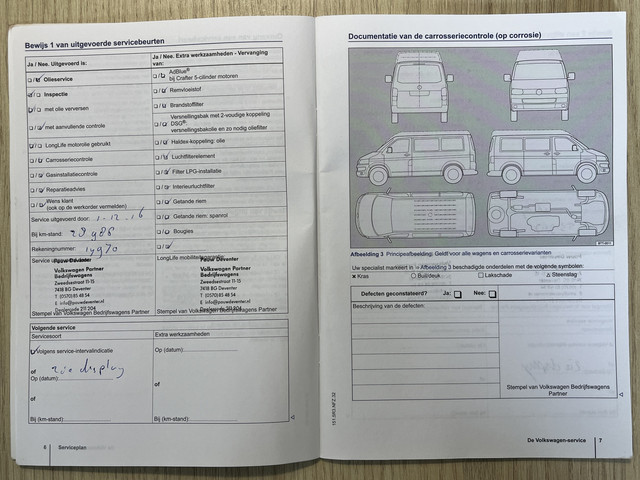 Bewijs 1 van uitgevoerde servicebeurten
Ja / Nee. Uitgevoerd is:
Olieservice
Inspectie
met olie verversen
met aanvullende controle
LongLife motorolie gebruikt
Carrosseriecontrole
Gasinstallatiecontrole
Reparatieadvies
Wens klant
(ook op de werkorder vermelden)
Service uitgevoerd door: 1-12-16
Bij km-stand:
Rekeningnummer:
Pouw Deventer
Volkswagen Partner
Bedrijfswagens
Zweedsestraat 11-15
7418 BG Deventer
T (0570) 85 48 54
E info@pouwdeventer.nl
Stempel van Volkswagen Bedrijfswagens Partner
Ja / Nee. Extra werkzaamheden - Vervanging
van:
AdBlue®
bij Crafter 5-cilinder motoren
Remvloeistof
Brandstoffilter
Versnellingsbak met 2-voudige koppeling
DSG®:
versnellingsbakolie en zo nodig oliefilter
Haldex-koppeling: olie
Luchtfilterelement
Filter LPG-installatie
Interieurluchtfilter
Getande riem
Getande riem: spanrol
Bougies
LongLife mobiliteitsgarantie
Pouw Deventer
Volkswagen Partner
Bedrijfswagens
Zweedsestraat 11-15
7418 BG Deventer
T (0570) 85 48 54
E info@pouwdeventer.nl
Stempel van Volkswagen Bedrijfswagens Partner
Volgende service
Servicesoort
Extra werkzaamheden
Volgens service-intervalindicatie
of zie display
Op (datum):
of
Bij (km-stand):
Op (datum):
of
Bij (km-stand):
6 Serviceplan
Documentatie van de carrosseriecontrole (op corrosie)
Afbeelding 3 Principeafbeelding: Geldt voor alle wagens en carrosserievarianten
Uw specialist markeert in ⇒ Afbeelding 3 beschadigde onderdelen met de volgende symbolen:
× Kras
○ Buil/deuk
□ Lakschade
△ Steenslag
Defecten geconstateerd?
Ja:
Nee:
Beschrijving van de defecten:
Stempel van Volkswagen Bedrijfswagens
Partner
151.5R3.NFZ.32
De Volkswagen-service 7